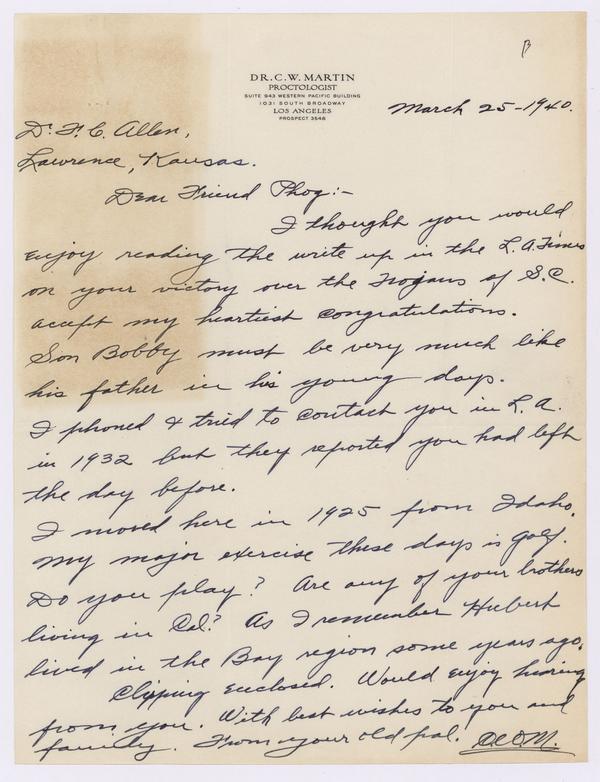 DR. C. W. MARTIN
PROCTOLOGIST
SUITE 943 WESTERN PACIFIC BUILDING
1031 SOUTH BROADWAY
LOS ANGELES
PROSPECT 3548
March 25-1940.
Dr. F. C. Allen,
Lawrence, Kansas.
Dear Friend Phog:-
I thought you would
enjoy reading the write up in the L.A. Times
on your victory over the Trojans of S.C.
accept my heartiest congratulations.
Son Bobby must be very much like
his father in his young days.
I phoned & tried to contact you in L.A.
in 1932 but they reported you had left
the day before.
I moved here in 1925 from Idaho.
My major exercise these days is golf.
Do you play? Are any of your brothers
living in Cal? As I remember Hubert
lived in the Bay region some years ago.
Clipping enclosed. Would enjoy hearing
from you. With best wishes to you and
family. From your old pal.